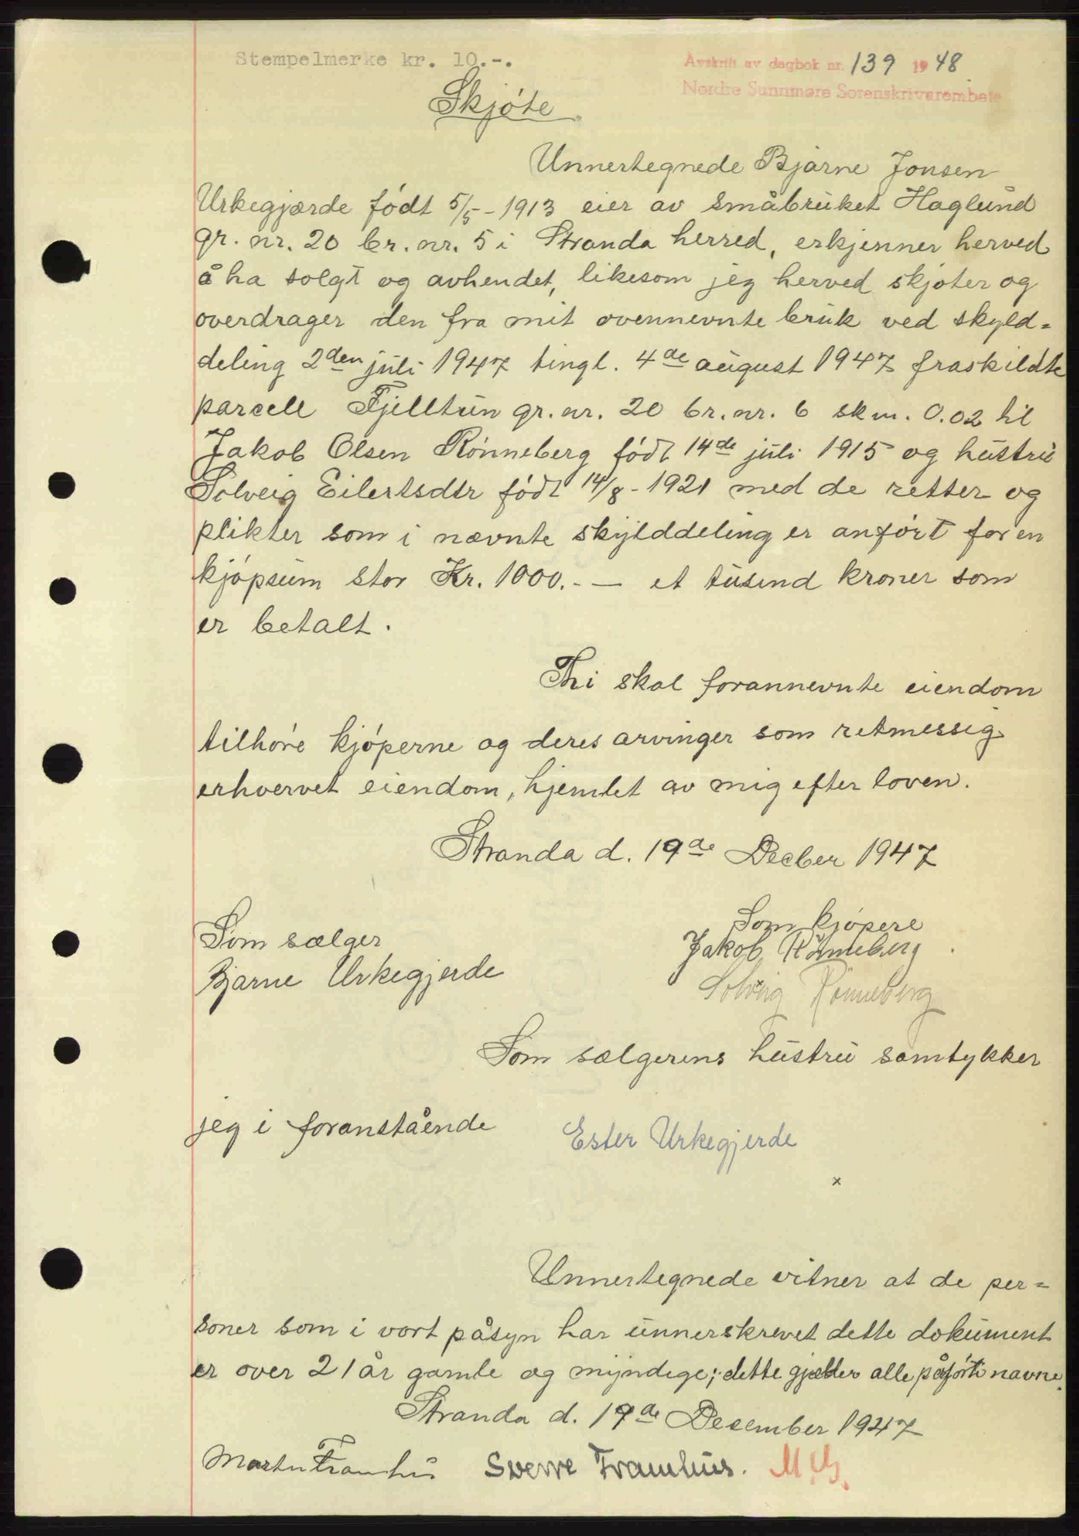 Stempelmerke kr. 10.-.
Avskrift av dagbok nr. 139 1948
Nordre Sunnmøre Sorenskriverembete
Skjøte
Unnertegnede Bjarne Jonsen
Urkegjærde født 5/5-1913 eier av småbruket Haglund
gr. nr. 20 br. nr. 5 i Stranda herred, erkjenner herved
å ha solgt og avhendet, likesom jeg herved skjøter og
overdrager den fra mit ovennevnte bruk ved skyld=
deling 2den juli 1947 tingl. 4de august 1947 fraskildte
parcell Fjelltun gr. nr. 20 br. nr. 6 skm. 0.02 til
Jakob Olsen Rønneberg født 14de juli 1915 og hustru
Solveig Eilertsdtr født 14/8-1921 med de retter og
plikter som i nævnte skylddeling er anført for en
kjøpsum stor Kr. 1000.-— et tusend kroner som
er betalt.
Thi skal forannevnte eiendom
tilhøre kjøperne og deres arvinger som retmessig
erhvervet eiendom, hjemlet av mig efter loven.
Stranda d. 19de Decber 1947
Som kjøpere
Som sælger
Jakob Rønneberg
Bjarne Urkegjerde
Solveig Rønneberg
Som sælgerens hustru samtykker
jeg i foranstående
Ester Urkegjerde
x
Unnertegnede vitner at de per=
soner som i vort påsyn har unnerskrevet dette dokument
er over 21 år gamle og myndige; dette gjælder alle påførte navne.
Stranda d. 19de Desember 1947
Martin Framhus Sverre Framhus. M.G.